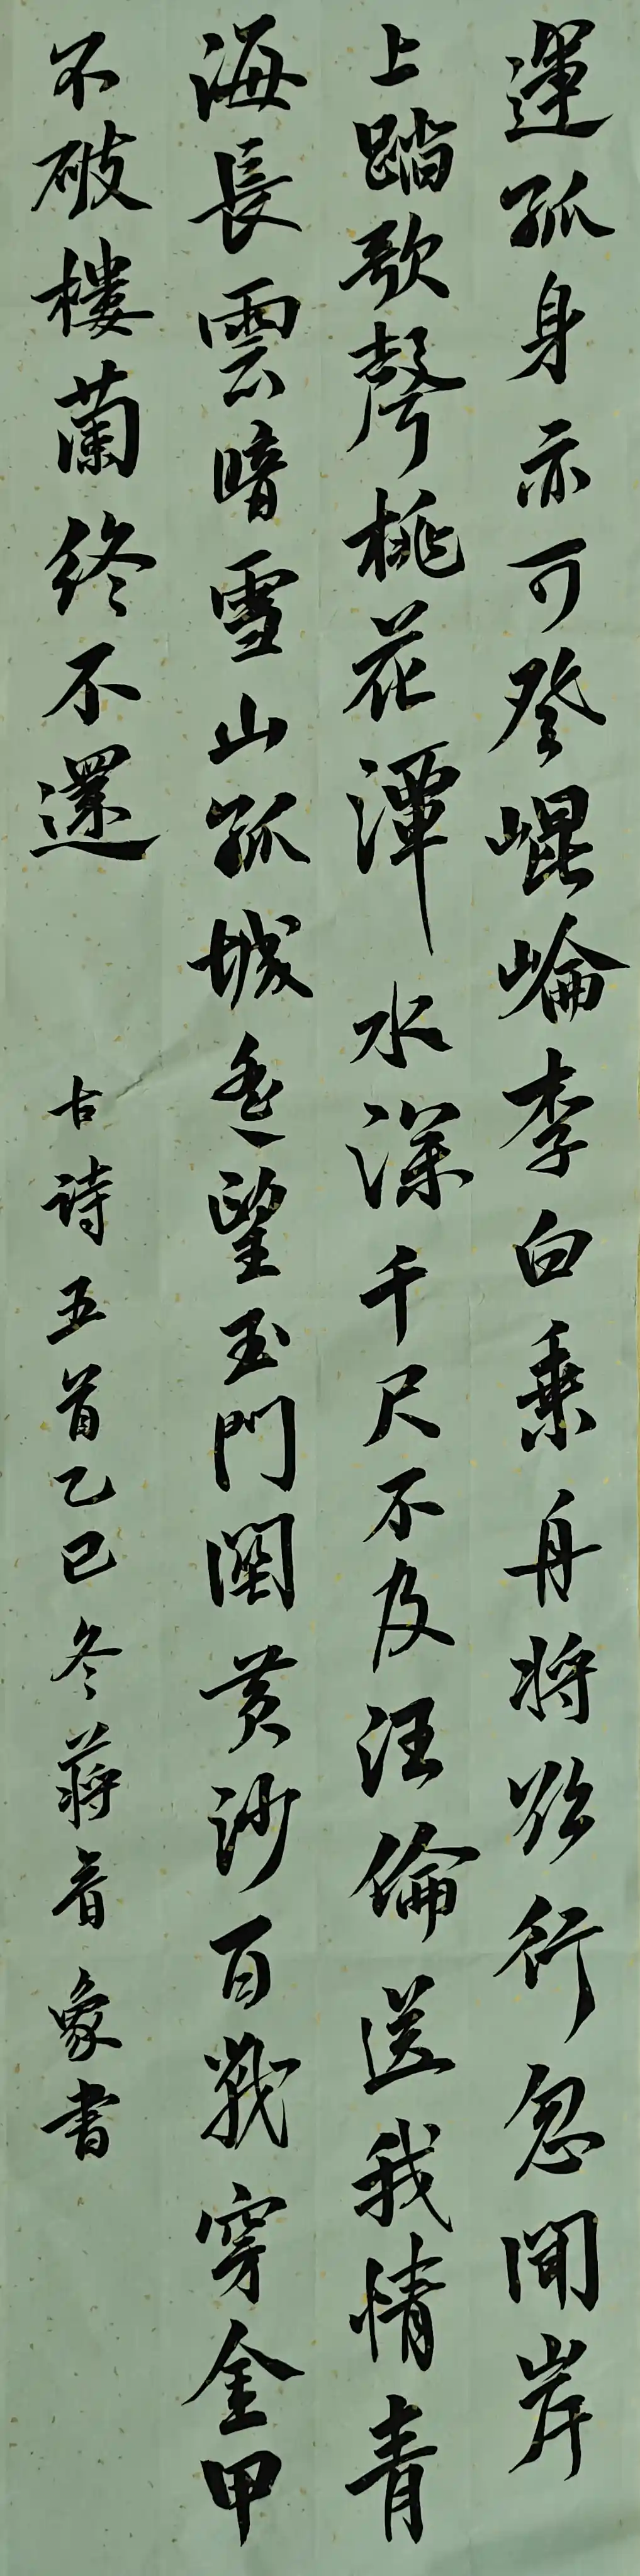 運孤身亦可登崐崘李白乘舟將欲行忽聞岸
上踏歌聲桃花潭水深千尺不及汪倫送我情青
海長雲暗雪山孤城遙望玉門關黄沙百戰穿金甲
不破樓蘭終不還 古詩五首乙巳冬蔣象書